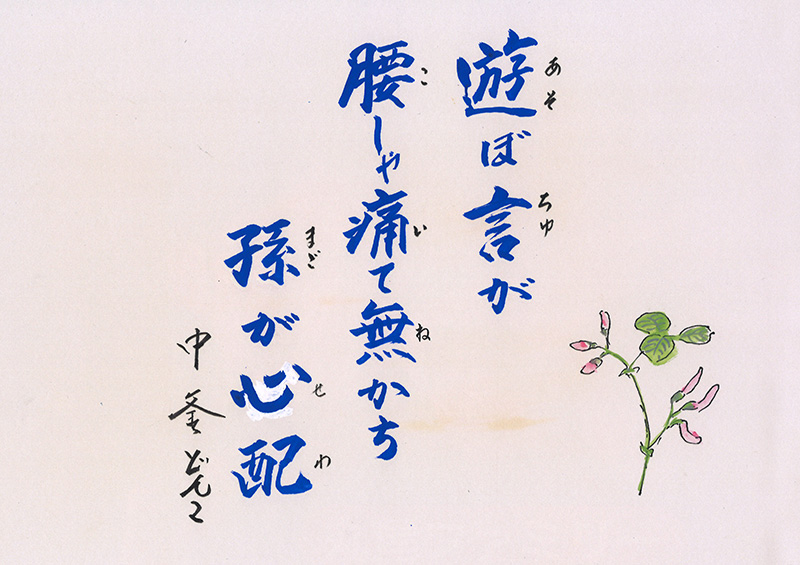 遊ぼ言が
あそ ちゆ
腰しゃ痛て無かち
こ い ね
孫が心配
まご せわ
中釜